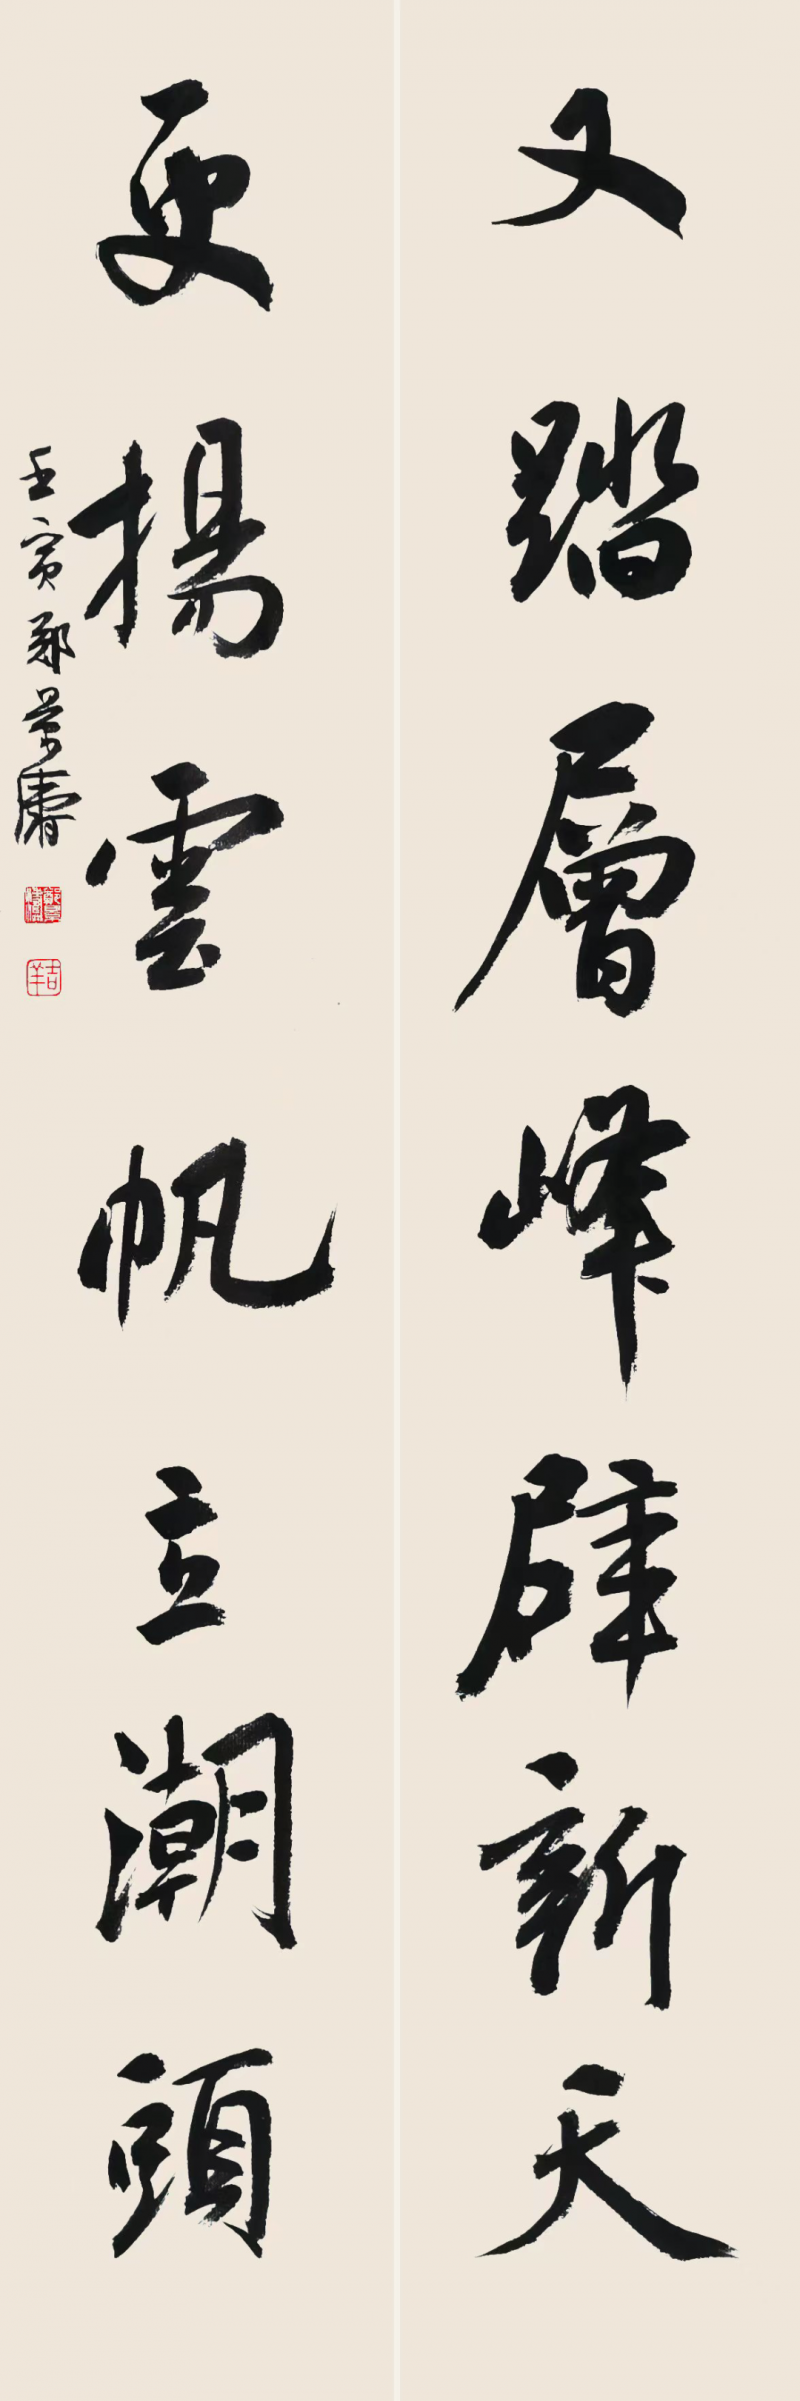 又踏層峰辟新天
更揚雲帆立潮頭
壬寅鄭景
吉羊